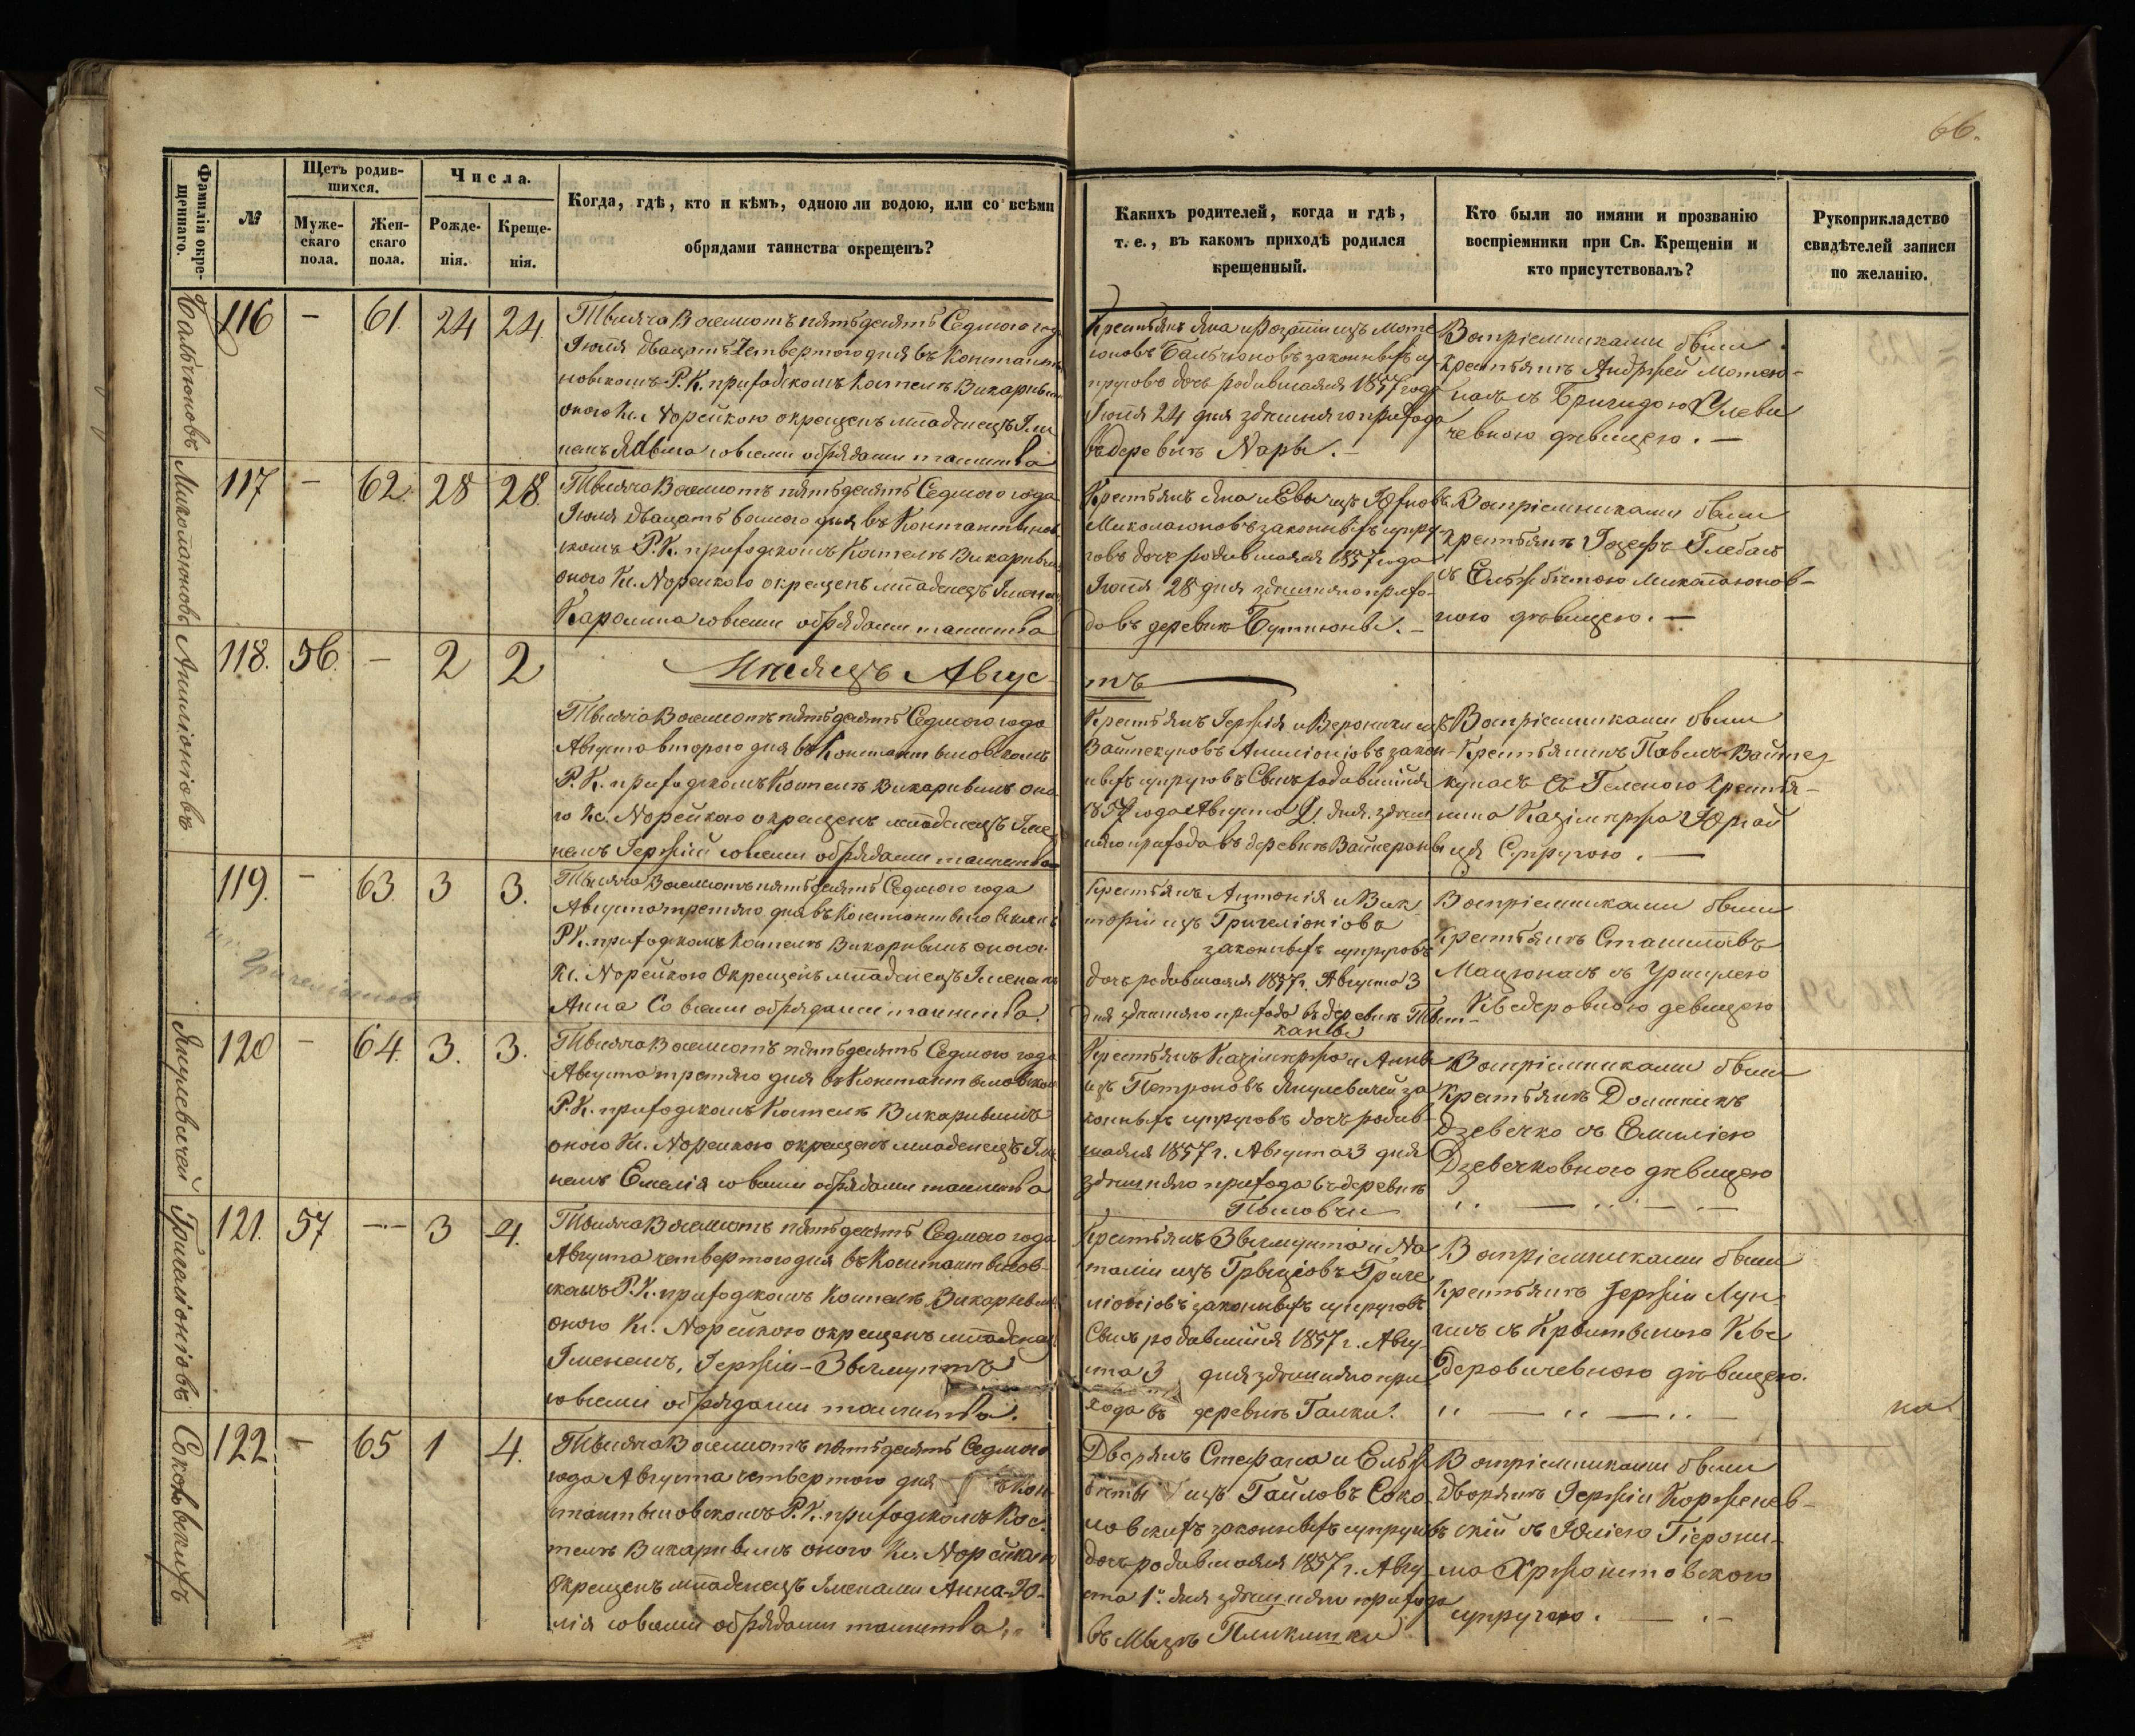 66.
Фамилiи окре-
щеннаго.
№
Щетъ родив-
шихся.
Муже-
скаго
пола.
Жен-
скаго
пола.
Числа.
Рожде-
нiя.
Креще-
нiя.
Когда, гдѣ, кто и кѣмъ, одною ли водою, или со всѣми
обрядами таинства окрещенъ?
Какихъ родителей, когда и гдѣ,
т. е., въ какомъ приходѣ родился
крещенный.
Кто были по имяни и прозванiю
воспрiемники при Св. Крещенiи и
кто присутствовалъ?
Рукоприкладство
свидѣтелей записи
по желанiю.
Бальчюновъ
116 — 61. 24 24.
Тысяча Восемсотъ пятьдесятъ Седмого года
Iюля двацать Четвертого дня въ Констант
новскомъ Р. К. приходскомъ Костелѣ Викарнымъ
оного Кс. Норейкою окрещенъ младенецъ Име
немъ со всеми обрядами таинства
Крестьянъ Яна и Розалiи изъ Мотe
юновъ Бальчюновъ законныхъ су
пруговъ дочь родившаяся 1857 года
Iюля 24 дня здешняго прихода
въ деревнѣ Нары. —
Воспрiемниками были
крестьянъ Андржей Мотею-
насъ съ Бригидою
чевною дѣвицею. —
Миколаюновъ
117 — 62. 28 28.
Тысяча Восемсотъ пятьдесятъ Седмого года
Iюля двацать восмого дня въ Константинов
скомъ Р. К. приходскомъ Костелѣ Викарнымъ
оного Кс. Норейкою окрещенъ младенецъ Именемъ
Каролина со всеми обрядами таинства
Крестьянъ Яна и Евы изъ Юхновъ
Миколаюновъ законныхъ супру-
говъ дочь родившаяся 1857 года
Iюля 28 дня здешняго прихо-
да въ деревнѣ —
Воспрiемниками были
крестьянъ Iозефъ Глебасъ
съ Ельжбетою Микалаюнов-
ною дѣвицею. —
118. 56. — 2 2
Мѣсяцъ Авгус-
тъ
Тысяча Восемсотъ пятьдесятъ Седмого года
Августа второго дня въ Константиновскомъ
Р. К. приходскомъ Костелѣ Викарнымъ оно
го Кс. Норейкою окрещенъ младенецъ Име
немъ Iержiй со всеми обрядами таинства
Крестьянъ Iержiя и Вероники изъ
Вайткуновъ закон-
ныхъ супруговъ Сынъ родившiйся
1857 года Августа 2 дня здеш
няго прихода въ деревнѣ
Воспрiемниками были
Крестьянинъ Павелъ Вайт
кунасъ съ Геленою крестья-
нина Казимержа
Супругою. —
119. — 63. 3 3.
Тысяча Восемсотъ пятьдесятъ Седмого года
Августа третяго дня въ Константиновскомъ
Р. К. приходскомъ Костелѣ Викарнымъ оного
Кс. Норейкою Окрещенъ младенецъ Именемъ
Анна Со всеми обрядами таинства.
Крестьянъ Антонiя и Вик
торiи изъ Григелiонiовъ
законныхъ супруговъ
дочь родившаяся 1857 г. Августа 3
дня здешняго прихода въ деревнѣ
Воспрiемниками были
крестьянъ Станиславъ
Мацюнасъ съ Уршулею
Кведеровною девицею
Янулевичей
120 — 64. 3. 3.
Тысяча Восемсотъ пятьдесятъ Седмого года
Августа третяго дня въ Константиновскомъ
Р. К. приходскомъ Костелѣ Викарнымъ
оного Кс. Норейкою окрещенъ младенецъ Име
немъ Емелiя со всеми обрядами таинства
Крестьянъ Казимержа и Анны
изъ Петроновъ Янулевичей за
конныхъ супруговъ дочь родив-
шаяся 1857 г. Августа 3 дня
здешняго прихода въ деревнѣ
Воспрiемниками были
крестьянъ Доминикъ
Дзевечко съ Емилiею
Дзевечковною дѣвицею
Григалiонiовъ
121. 57 — 3 4.
Тысяча Восемсотъ пятьдесятъ Седмого года
Августа четвертого дня въ Константинов-
скомъ Р. К. приходскомъ Костелѣ Викарнымъ
оного Кс. Норейкою окрещенъ младенецъ
Iменемъ, Iержiй-Зыгмунтъ
со всеми обрядами таинства.
Крестьянъ Зыгмунта и На
талiи изъ Григе
лiонiовъ законныхъ супруговъ
Сынъ родившiйся 1857 г. Авгу-
ста 3 дня здешняго при
хода въ деревнѣ Галки.
Воспрiемниками были
Крестьянъ Iержiй
съ Крыстыною Кве
деровичевною дѣвицею.
на
Соколовскихъ
122. — 65 1 4.
Тысяча Восемсотъ пятьдесятъ Седмого
года Августа четвертого дня въ Кон-
стантыновскомъ Р. К. приходскомъ Кос-
телѣ Викарнымъ оного Кс. Норейкою
Окрещенъ младенецъ Именами Анна-Ю-
лiя со всеми обрядами таинства.
Дворянъ Стефана и Ельж
беты изъ Гайловъ Соко-
ловскихъ законныхъ супруговъ
дочь родившаяся 1857 г. Авгу-
ста 1го дня здешняго прихода
въ Мызѣ Пликишки
Воспрiемниками были
дворянъ Iержiй Корженев-
скiй съ Юлiею Гiерони-
ма Хржонстовского
супругою. —